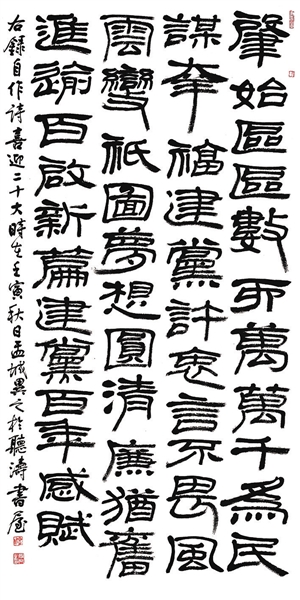 肇始區區數而萬萬千為民
謀幸福建黨許忠言不畏風
雲變祇圖夢想圓清廉猶奮
進逾百啟新篇建黨百年感賦
右錄自作詩喜迎二十大時在壬寅秋日孟城異之於聽濤書屋